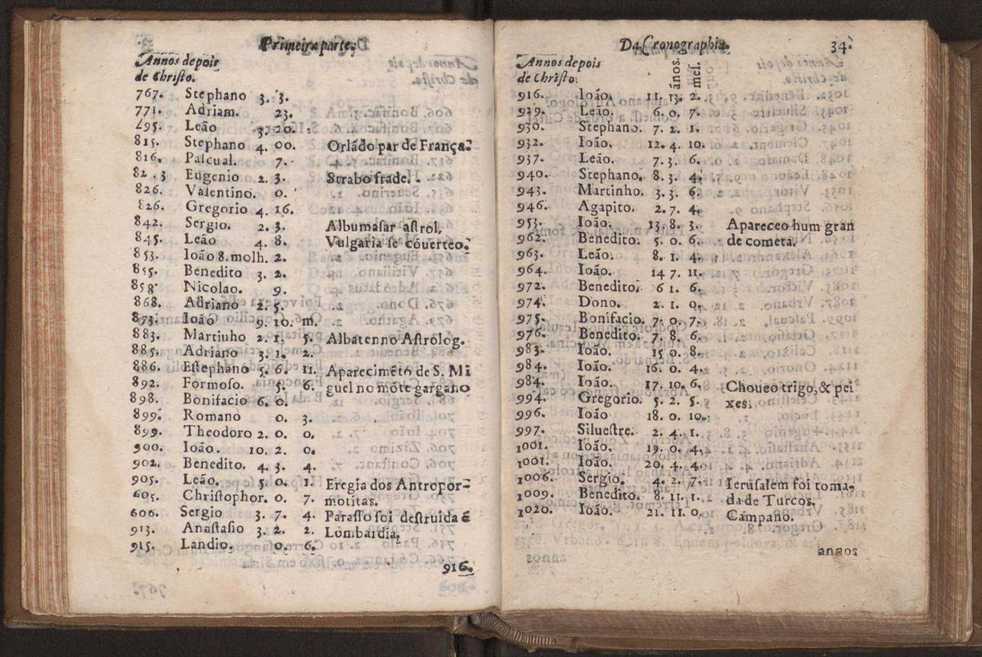 Primeira parte.
Annos depois
de Christo.
767. Stephano 3. 3.
771. Adriam. 23.
795. Leão 3. 20.
815. Stephano 4. 00. Orládo par de França.
816. Pascual. 7.
82.3 Eugenio 2. 3. Strabo frade.
826. Valentino. 0.
826. Gregorio 4. 16.
842. Sergio. 2. 3. Albumasar astrol.
845. Leão 4. 8. Vulgaria se cóuerteo.
853. Ioão 8. molh. 2.
855. Benedito 3. 2.
858. Nicolao. 9.
868. Adriano 2. 5.
873. Ioão 9. 10. m.
883. Martinho 2. 1. 5. Albatenno Astrolog.
885. Adriano 3. 1. 2.
886. Estephano 5. 6. 11. Aparecimēto de S. Mi
892. Formoso. 5. 6. guel no móte gargano
898. Bonifacio 6. 0.
899. Romano 0. 3.
899. Theodoro 2. 0. 0.
900. Ioão. 10. 2. 0.
902. Benedito. 4. 3. 4.
905. Leão. 5. 0. 1. Eregia dos Antropor-
605. Christophor. 0. 7. motitas.
606. Sergio 3. 7. 4. Parasso foi destruida é
913. Anastasio 3. 2. 2. Lombardia.
915. Landio. 0. 6.
916.
Da Cronographia. 34.
Annos depois
de Christo.
ános.
mes.
916. Ioão. 11. 13. 2.
929. Leão. 6. 0. 7.
930. Stephano. 7. 2. 1.
932. Ioão. 12. 4. 10.
937. Leão. 7. 3. 6.
940. Stephano. 8. 3. 4.
943. Martinho. 3. 3. 6.
946. Agapito. 2. 7. 4.
953. Ioão. 13. 8. 3. Apareceo hum gran
962. Benedito. 5. 0. 6. de cometa.
963. Leão. 8. 1. 4.
964. Ioão. 14 7. 11.
972. Benedito. 6 1. 6.
974. Dono. 2. 1. 0.
975. Bonifacio. 7. 0. 7.
976. Benedito. 7. 8. 6.
983. Ioão. 15 0. 8.
984. Ioão. 16. 0. 4.
984. Ioão. 17. 10. 6. Choueo trigo, & pei
994. Gregorio. 5. 2. 5. xes.
996. Ioão 18. 0. 10.
997. Siluestre. 2. 4. 1.
1001. Ioão. 19. 0. 4.
1001. Ioão. 20. 4. 4.
1006. Sergio. 4. 2. 7. Ierusalem foi toma-
1009. Benedito. 8. 11. 1. da de Turcos.
1020. Ioão. 21. 11. 0. Campano.
annos